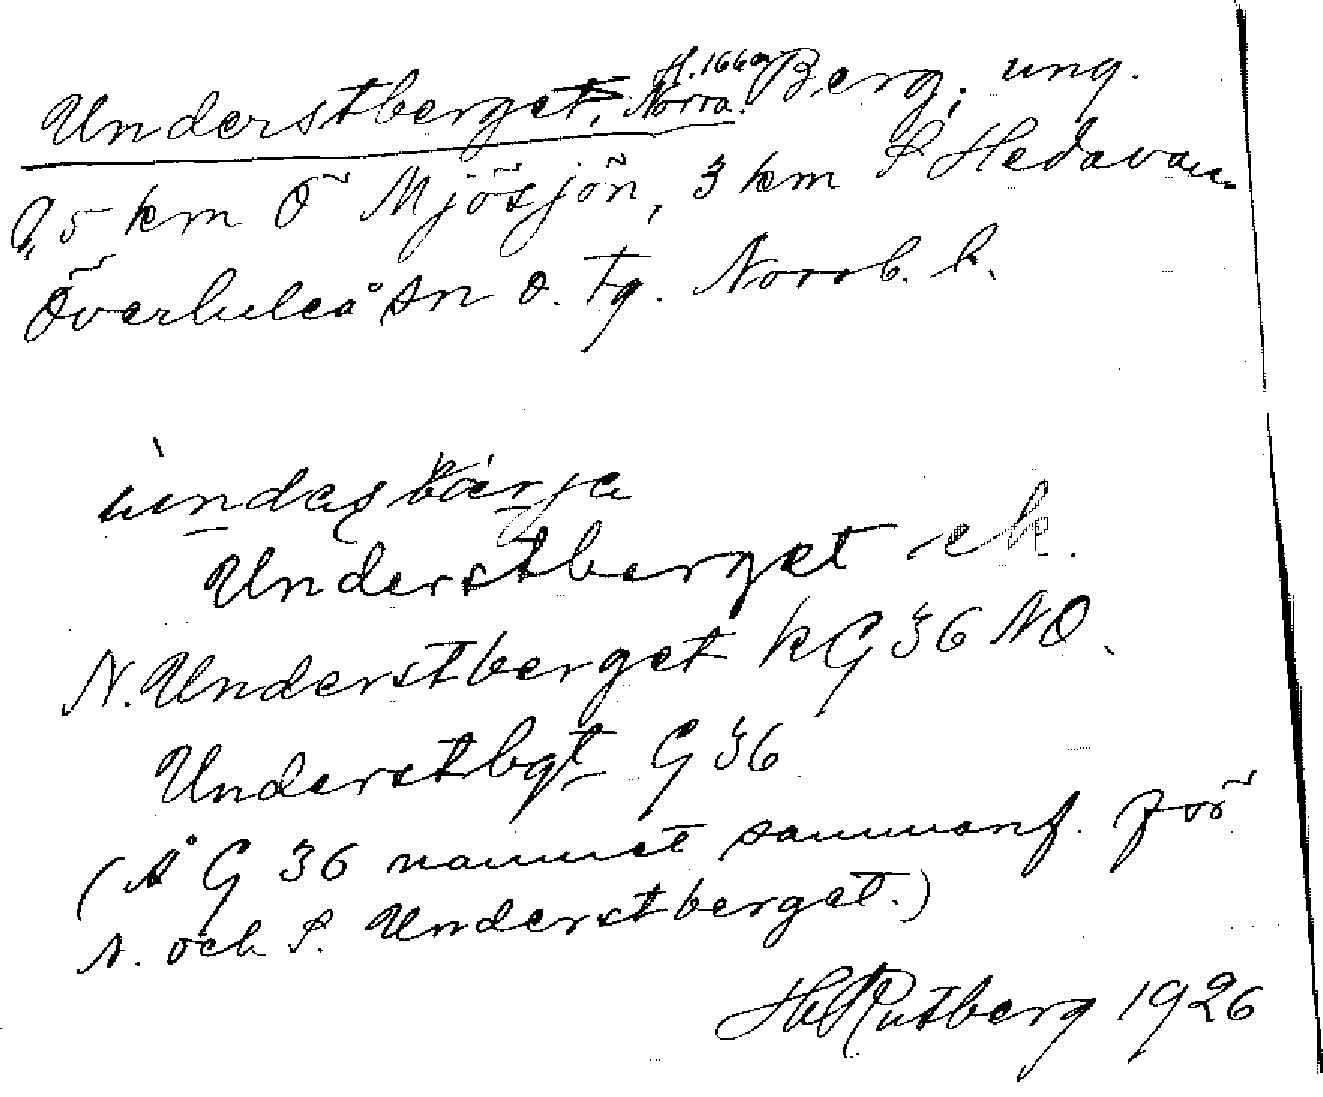 Understberget, Norra. H. 166 a Berg; ung.
0,5 km Ö Mjösjön, 3 km S Hedavan
Överluleå sn o. tg. Norrb. l.
Understberget ek.
N. Understberget kG 36 NO.
Understbgt G 36
(Å G 36 namnet sammanf. för
N. och S. Understberget.)
Hl Rutberg 1926